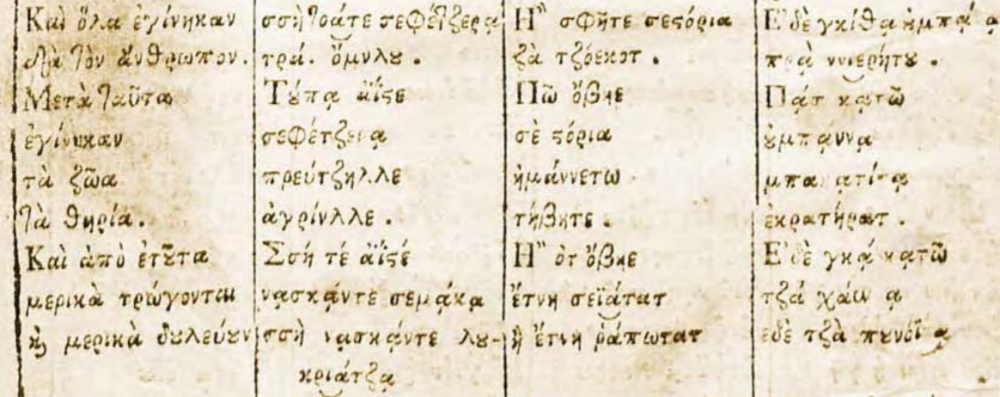 Καὶ ὅλα ἐγίνηκαν
διὰ τὸν ἄνθρωπον.
Μετὰ ταῦτα
ἐγίνηκαν
τὰ ζῶα
τὰ θηρία.
Καὶ ἀπὸ ἐτȣ͂τα
μερικὰ τρώγονται
ϗ μερικὰ δȣλεύȣν
σσὴ τοάτε σεφέτζερα
τρά. ὄμνλȣ.
Τȣ́πα ἄϊςε
σεφέτζερα
πρεύτζηλλε
ἀγρίνλλε.
Σσή τέ ἄϊςέ
νασκάντε σεμάκα
σσὴ νασκάντε λȣ-
κριάτζα
Η῎ σφῆτε σεςόρια
ζὰ τζόεκοτ.
Πῶ ὄβιε
σὲ ςόρια
ἡμάννετω
τήβητε.
Η῎ ὀτ ὄβιε
ἔτνη σεϊάτατ
ἢ ἔτνη ῥάπωτατ
Ε᾿δὲ γκίθα
πρὰ
Πάτ κατῶ
ȣμπάννα
ἐκρατήρατ.
Ε᾿δὲ γκά κατῶ
τζά χάω α
ἐδὲ τζὰ